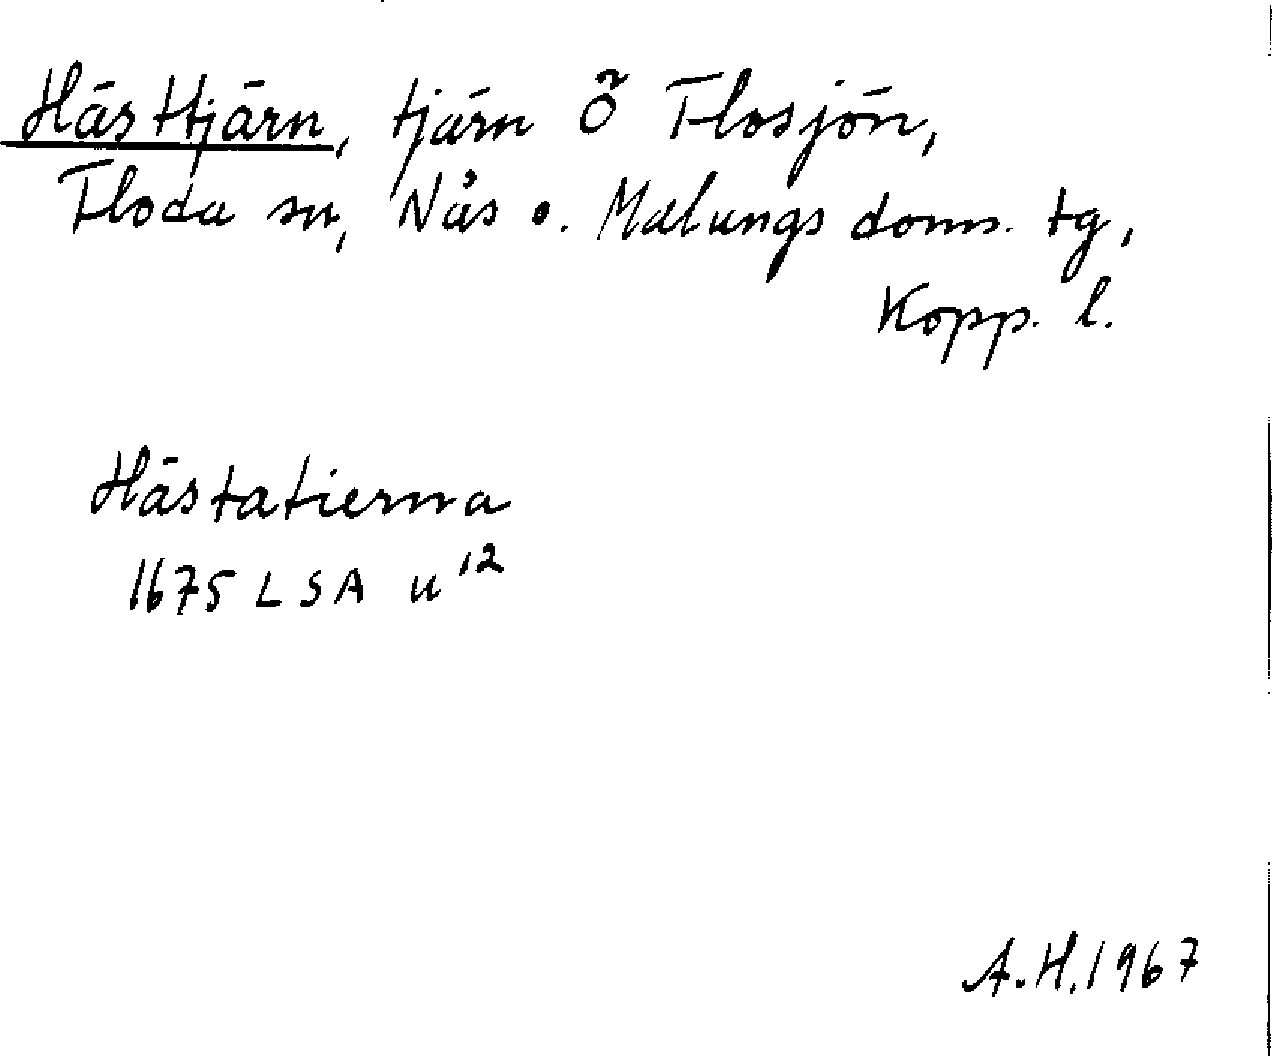 Hästtjärn, tjärn Ö Flosjön,
Floda sn, Nås o. Malungs doms. tg,
Kopp. l.
Hästatierna
1675 LSA u 12
A.H. 1967